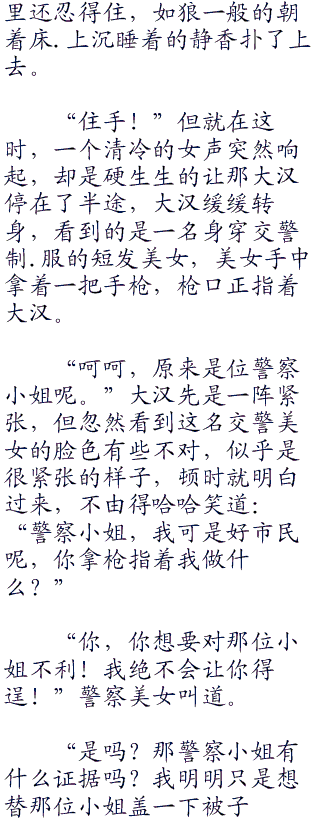 里还忍得住，如狼一般的朝
着床.上沉睡着的静香扑了上
去。
“住手！”但就在这
时，一个清冷的女声突然响
起，却是硬生生的让那大汉
停在了半途，大汉缓缓转
身，看到的是一名身穿交警
制.服的短发美女，美女手中
拿着一把手枪，枪口正指着
大汉。
“呵呵，原来是位警察
小姐呢。”大汉先是一阵紧
张，但忽然看到这名交警美
女的脸色有些不对，似乎是
很紧张的样子，顿时就明白
过来，不由得哈哈笑道：
“警察小姐，我可是好市民
呢，你拿枪指着我做什
么？”
“你，你想要对那位小
姐不利！我绝不会让你得
逞！”警察美女叫道。
“是吗？那警察小姐有
什么证据吗？我明明只是想
替那位小姐盖一下被子